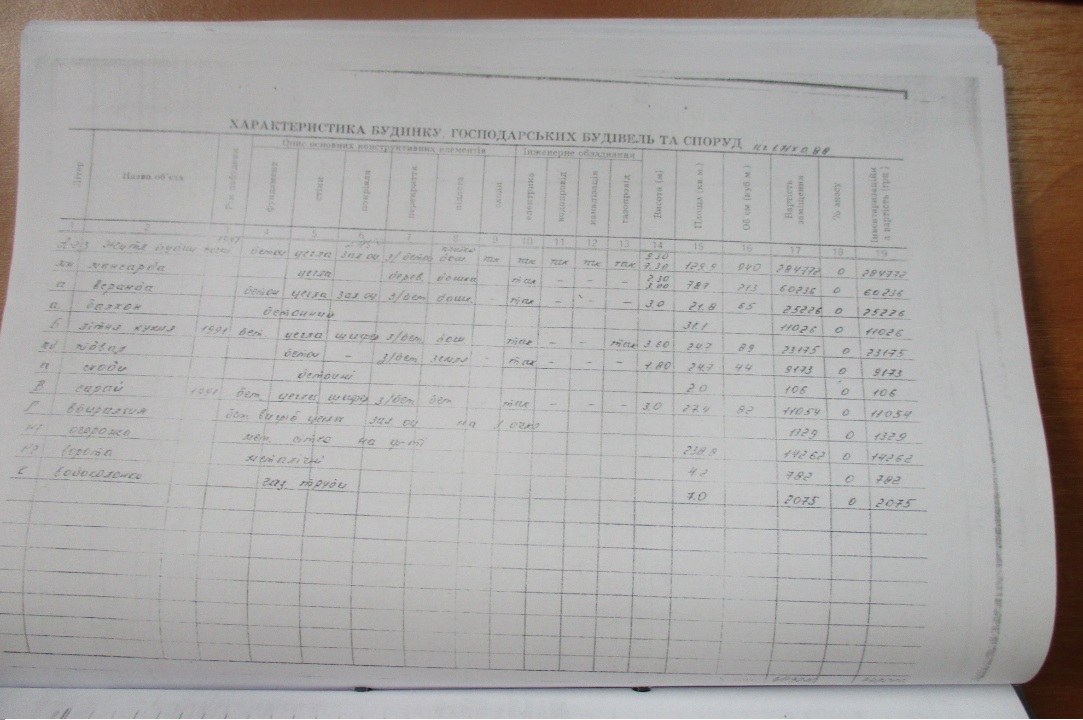 ХАРАКТЕРИСТИКА БУДИНКУ, ГОСПОДАРСЬКИХ БУДІВЕЛЬ ТА СПОРУД
Опис основних конструктивних елементів Інженерне обладнання
Літер Назва об'єкта Рік побудови фундамент стіни покрівля перекриття підлога сходи електрика водопровід каналізація газопровід Висота (м) Площа (кв.м.) Об'єм (куб.м.) Вартість заміщення % зносу Інвентаризаційна вартість (грн.)
1 2 3 4 5 6 7 8 9 10 11 12 13 14 15 16 17 18 19
бетон цегла зал оц з/бетон дош. так так так так так 284772 0 284772
мн мансарда цегла дерев. дошка так – – – 2.30 787 213 60236 0 60236
а веранда бетон цегла зал оц з/бет. дош. – так – – 3.0 21.8 65 25226 0 25226
а балкон бетонний 31.1 11026 0 11026
Б літня кухня 1991 бет. цегла шифер з/бет. дош. так – – так 3.60 24.7 89 23175 0 23175
пд підвал бетон – з/бет земля – так – – – 1.80 24.7 44 9173 0 9173
а сходи бетонні 2.0 106 0 106
В сарай 1991 бет. цегла шифер з/бет бет. так – – – 3.0 27.4 82 11054 0 11054
Г вбиральня цегла зал оц на 1 очко 1329 0 1329
огорожа мет. сітка на 238.8 14262 0 14262
ворота металічні 4.2 782 0 782
К водоколонка газ труби 7.0 2075 0 2075